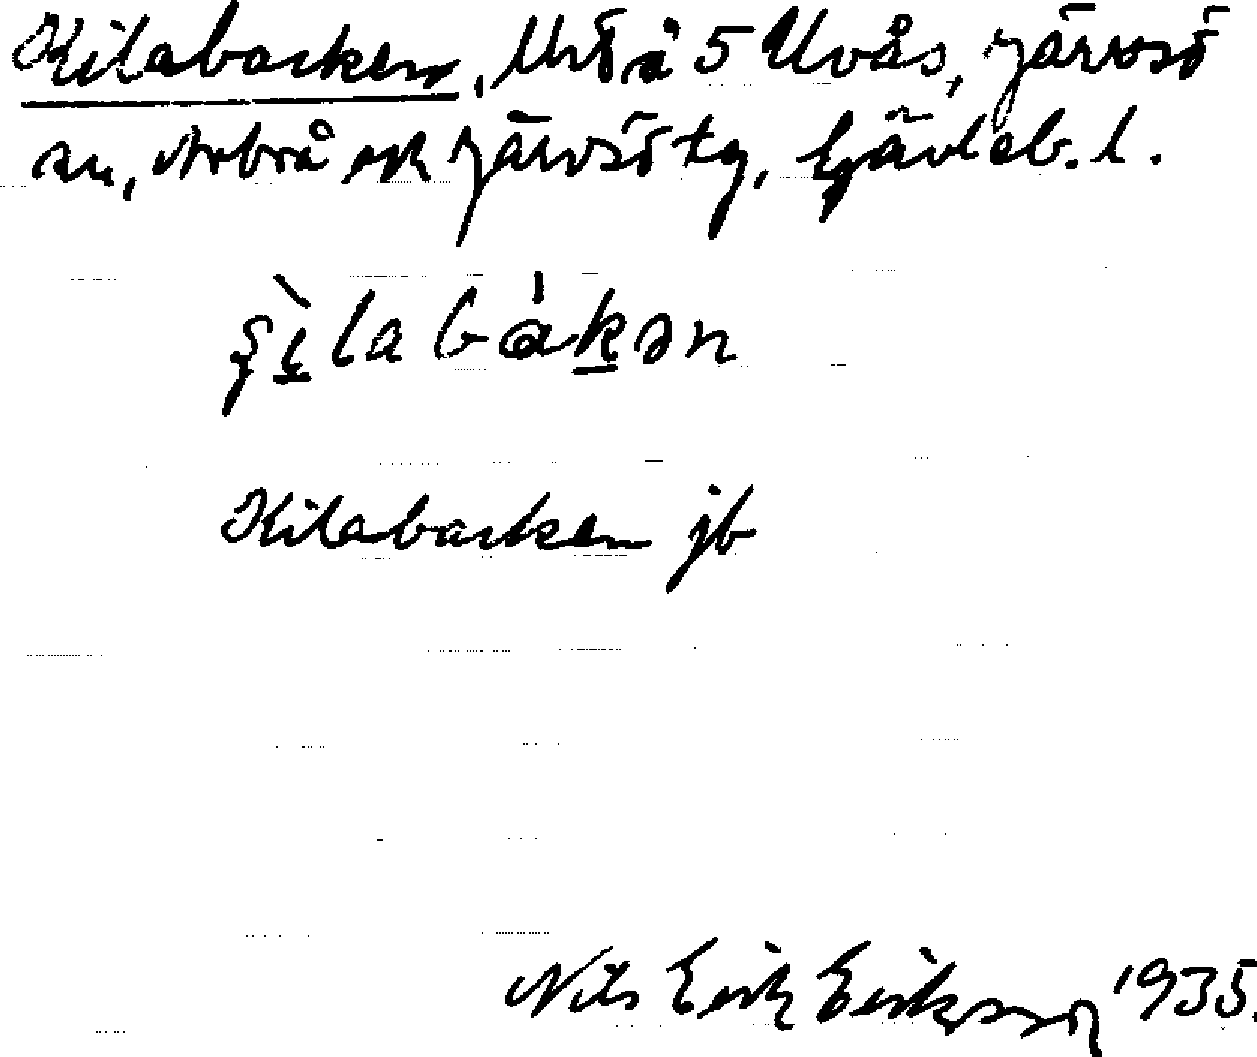 Kilabacken, Urö i å 5 Uvås, Järvsö
sn, Arbrå och Järvsö tg, Gävleb. l.
Kilabacken jb
Nils Erik Eriksson 1935.